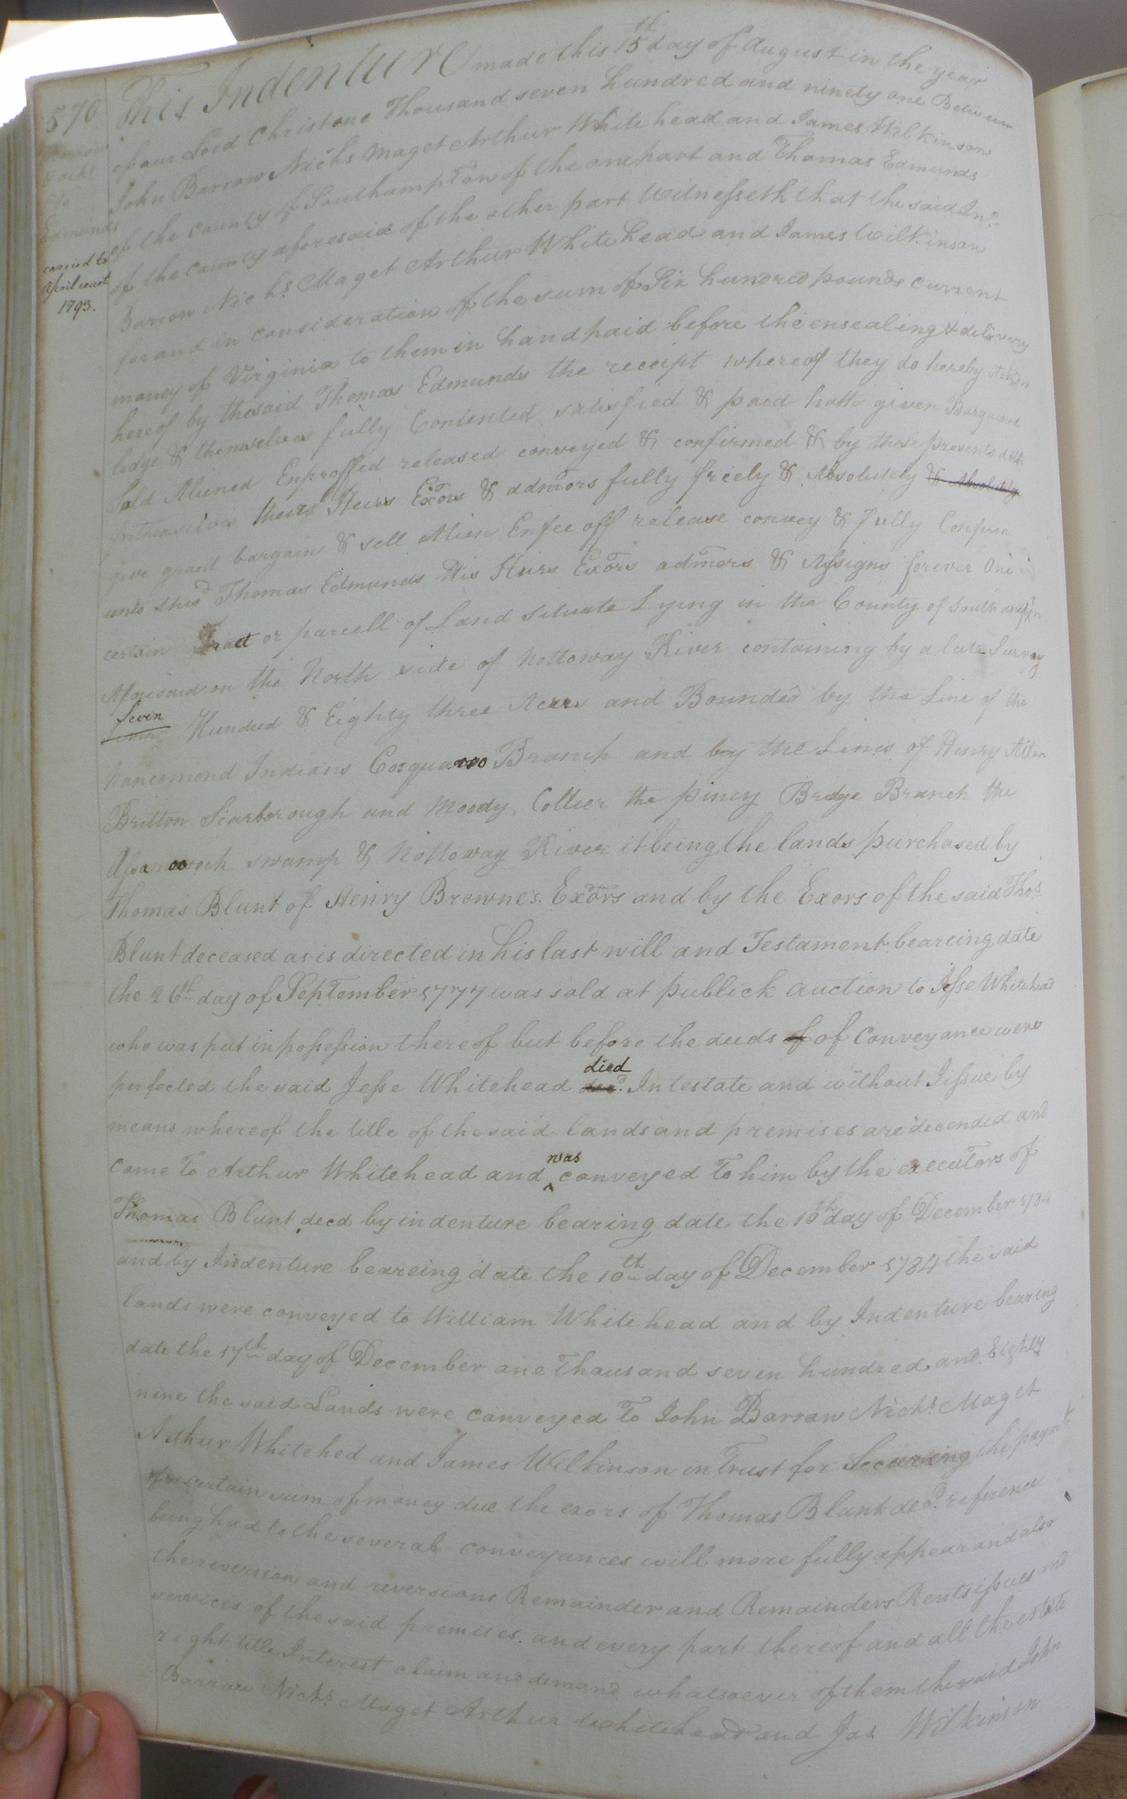 570
This Indenture made this 15th day of August in the year
of our Lord Christ one Thousand seven hundred and ninety one Between
John Barrow Nichs Maget Arthur Whitehead and James Wilkinson
of the County of Southampton of the one part and Thomas Edmunds
of the County aforesaid of the other part Witnesseth that the said Jno.
Barrow Nichs. Maget Arthur Whitehead and James Wilkinson
for and in consideration of the sum of Six hundred pounds current
money of Virginia to them in hand paid before the ensealing & delivery
hereof by the said Thomas Edmunds the receipt whereof they do hereby
ledge & themselves fully Contented satisfied & paid hath given Bargained
Sold Aliened Enfeoffed released conveyed & confirmed & by these presents doth
their Heirs Exors & admors fully freely & Absolutely & Absolutely
give grant bargain & sell Alien Enfeeoff release convey & fully Confirm
unto the sd Thomas Edmunds His Heirs Exors admors & Assigns forever One
certain Tract or parcell of Land Situate Lying in the County of Southampton
Aforesaid on the North side of Nottoway River containing by a late Survey
Seven Hundred & Eighty three Acres and Bounded by the Line of the
Nancemond Indians Cosquaroo Branch and by the Lines of Henry Allen
Britton Scarborough and Moody, Collier the piney Bridge Branch the
Assamoosock swamp & Nottoway River it being the lands purchased by
Thomas Blunt of Henry Browne's Exors and by the Exors of the said Thos.
Blunt deceased as is directed in his last will and Testament beareing date
the 26th day of September 1777 was sold at publick auction to Jesse Whitehead
who was put in possession thereof but before the deeds of of Conveyance were
perfected the said Jesse Whitehead died Intestate and without Issue by
means whereof the title of the said lands and premises are decended and
came to Arthur Whitehead and was conveyed to him by the executors of
Thomas Blunt decd by indenture bearing date the 10th day of December 1784
and by Indenture beareing date the 10th day of December 1784 the said
lands were conveyed to William Whitehead and by Indenture bearing
date the 17th day of December one Thousand seven hundred and Eighty
nine the said Lands were conveyed to John Barrow Nichs. Maget
Arthur Whitehed and James Wilkinson in Trust for Securing the paymt
of a certain sum of money due the exors of Thomas Blunt decd. reference
being had to the several conveyances will more fully appear and also
the reversion and reversions Remainder and Remainders Rents issues and
services of the said premises and every part thereof and all the estate
right title Interest claim and demand whatsoever of them the said John
Barrow Nichs. Maget Arthur Whitehead and Jas Wilkinson
Barrow
&ochs
to
Edmunds
carried to
April court
1793.